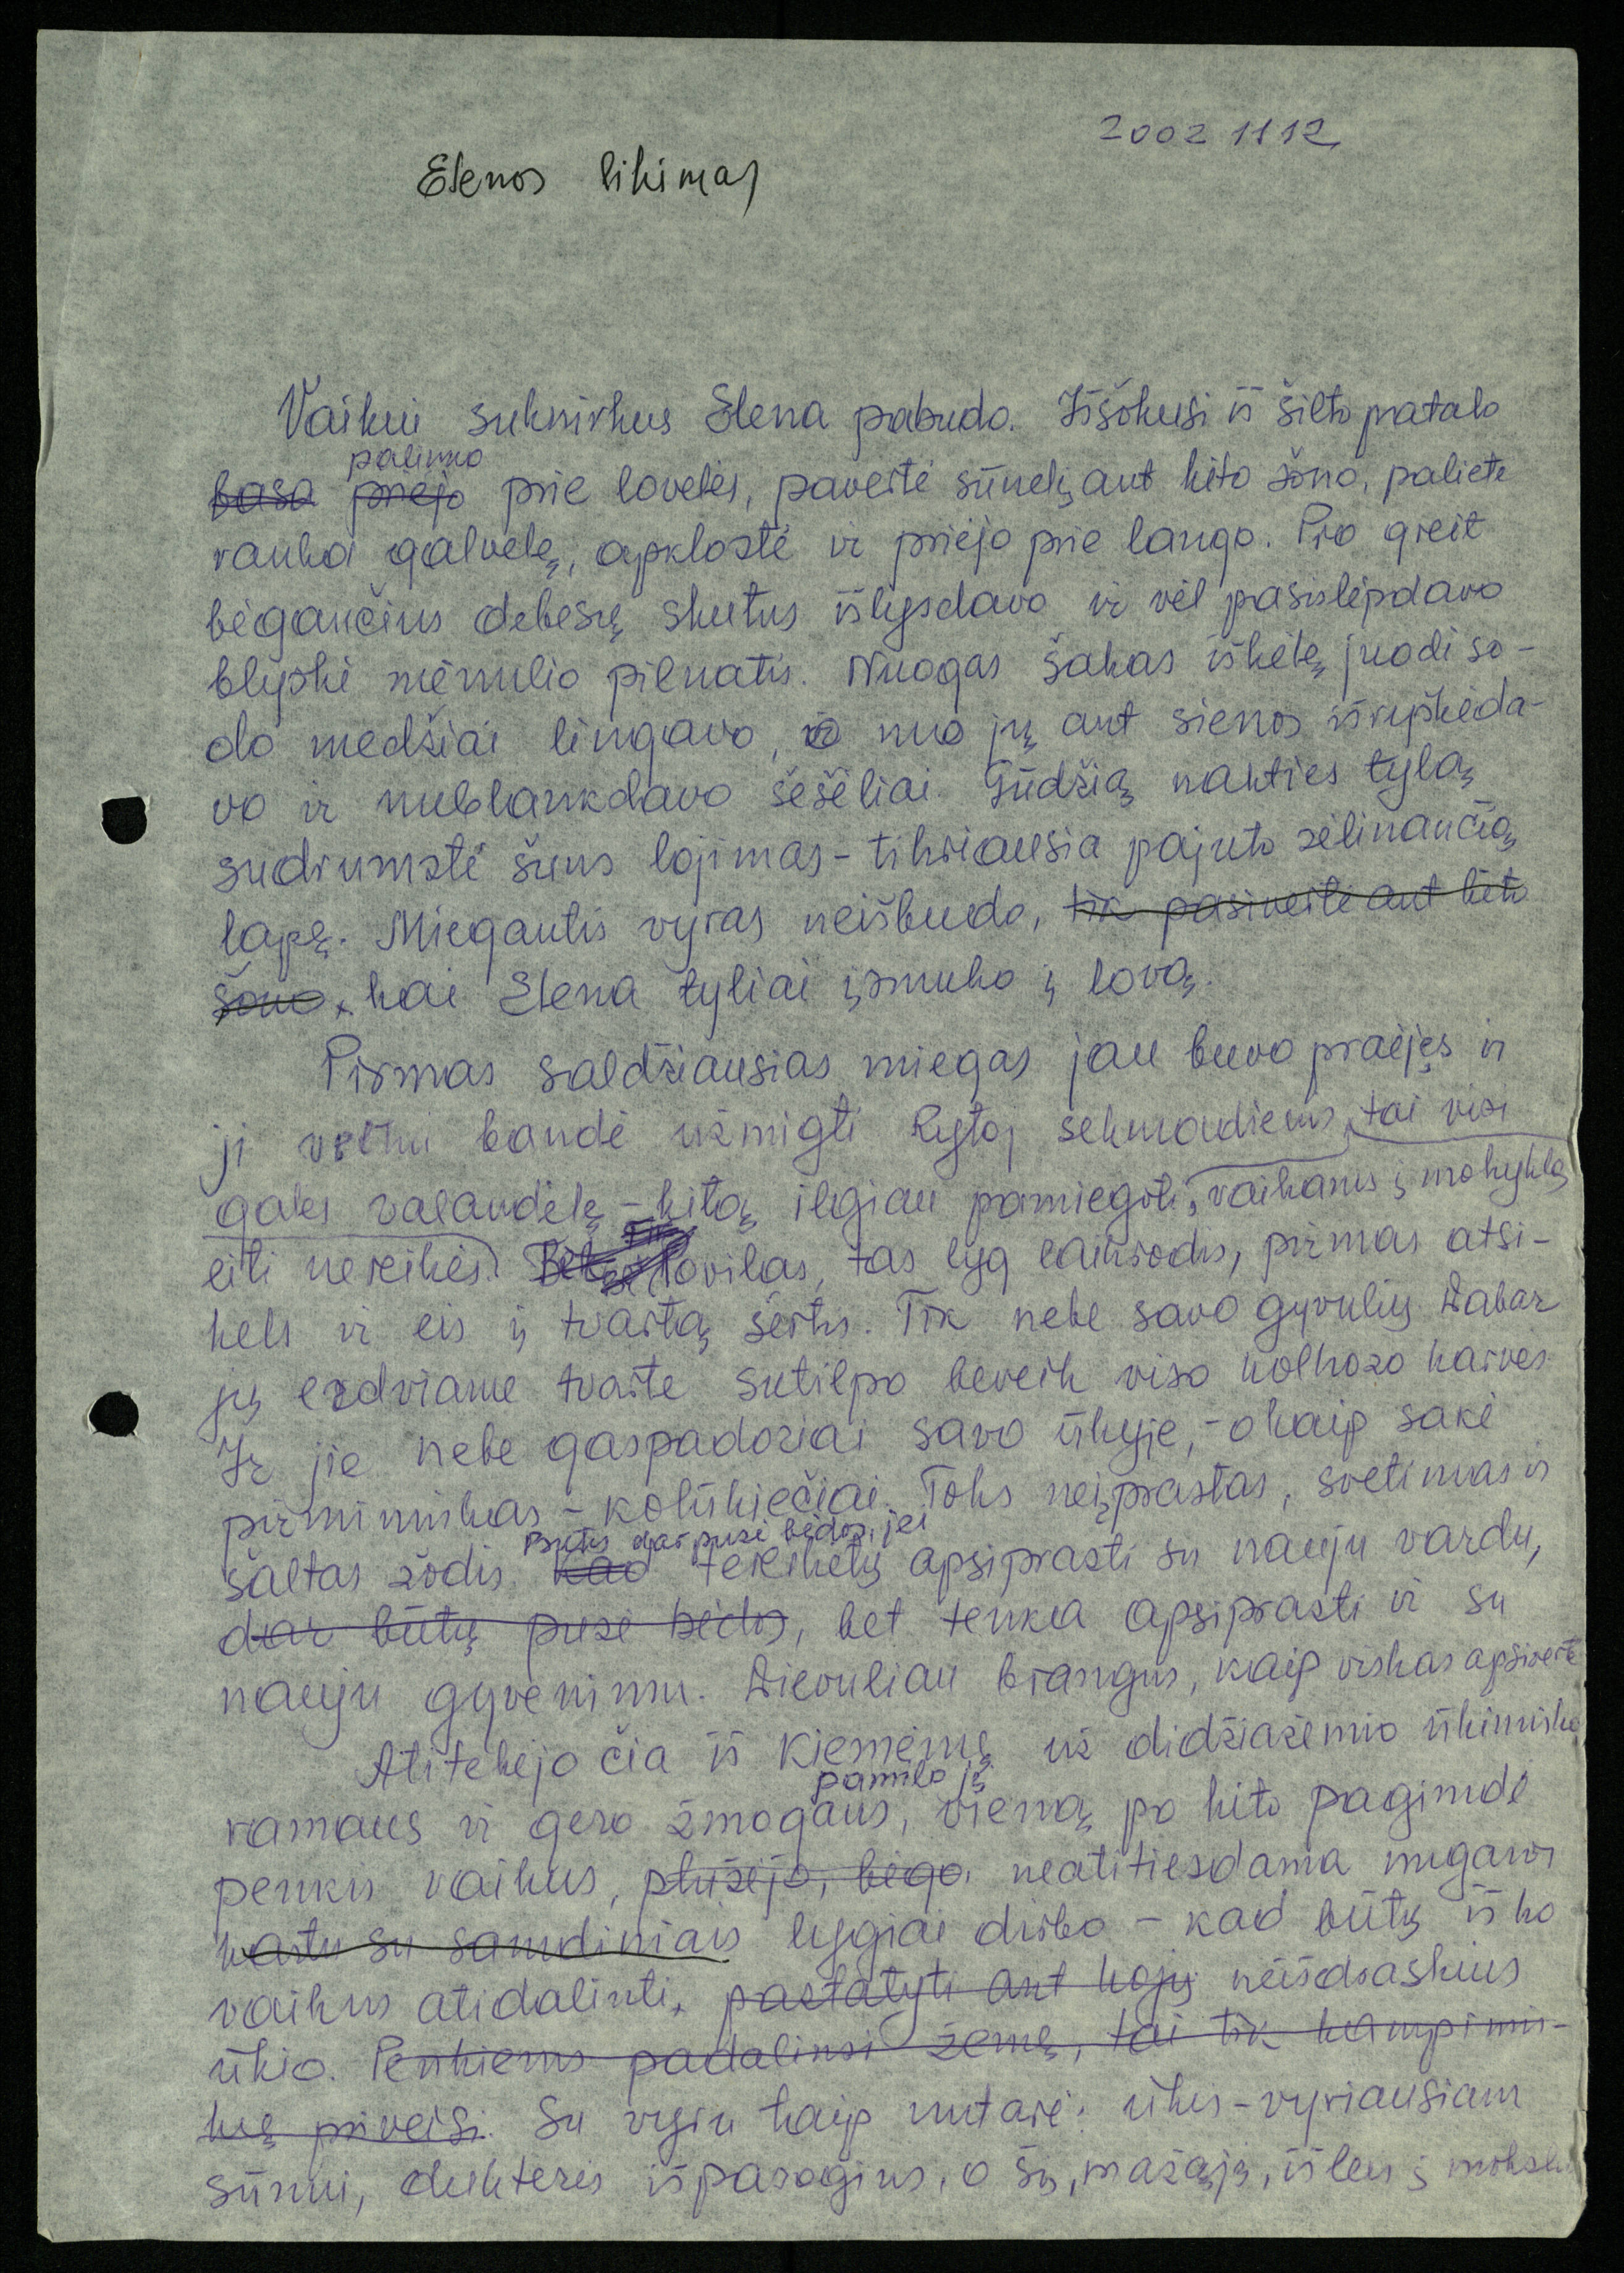 2002 11 12
Elenos likimas
Vaikui suknirkus Elena pabudo. Iššokusi iš šilto patalo
palinko
basa priėjo prie lovelės, pavertė sūnelį ant kito šono, palietė
ranka galvelę, apklostė ir priėjo prie lango. Pro greit
bėgančius debesų skutus išlysdavo ir vėl pasislėpdavo
blyški mėnulio pilnatis. Nuogas šakas iškėlę juodi so-
do medžiai lingavo, o nuo jų ant sienos išryškėda-
vo ir nublankdavo šešėliai. Gūdžią nakties tylą
sudrumstė šuns lojimas - tikriausia pajuto sėlinančią
lapę. Miegantis vyras neišbudo, tik pasivertė ant kito
šono, kai Elena tyliai įsmuko į lovą.
Pirmas saldžiausias miegas jau buvo praėjęs ir
ji veltui bandė užmigti Rytoj sekmadienis, tai visi
galės valandėlę - kitą ilgiau pamiegoti, vaikams į mokyklą
eiti nereikės. Tik
Bet Povilas, tas lyg laikrodis, pirmas atsi-
kels ir eis į tvartą šertis. Tik nebe savo gyvulių Dabar
jų erdviame tvarte sutilpo beveik viso kolhozo karvės.
Ir jie nebe gaspadoriai savo ūkyje, - o kaip sakė
pirmininkas - kolūkiečiai. Toks neįprastas, svetimas ir
Būtų dar pusė bėdos, jei
šaltas žodis. Kad tereikėtų apsiprasti su nauju vardu,
dar būtų pusė bėdos, bet tenka apsiprasti ir su
nauju gyvenimu. Dievuliau brangus, kaip viskas apsivertė
Atitekėjo čia iš Kiemėnų už didžiažemio ūkininko
pamilo jį
ramaus ir gero žmogaus, vieną po kito pagimdė
penkis vaikus, plušėjo, bėgo, neatitiesdama nugaros
kartu su samdiniais lygiai dirbo - kad būtų iš ko
vaikus atidalinti, pastatyti ant kojų neišdraskius
ūkio. Penkiems padalinsi žemę, tai tik kampinin-
kų priveisi. Su vyru taip nutarė: ūkis - vyriausiam
sūnui, dukteris išparagins, o šį, mažąjį, išleis į mokslu